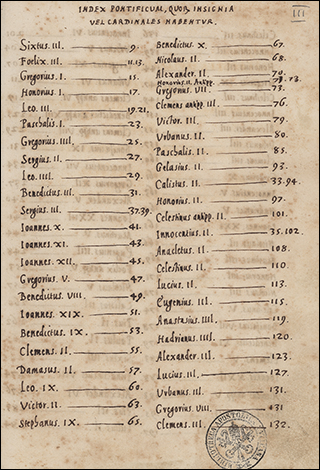 INDEX PONTIFICVM, QVOR. INSIGNIA
VEL CARDINALES HABENTVR.
III
Sixtus. III. 9.
Foelix. III. 11.13.
Gregorius. I. 15.
Honorius. I. 17.
Leo. III. 19.21.
Paschalis. I. 23.
Gregorius. IIII. 25.
Sergius. II. 27.
Leo. IIII. 29.
Benedictus. III. 31.
Sergius. III. 37.39.
Ioannes. X. 41.
Ioannes. XI. 43.
Ioannes. XII. 45.
Gregorius. V. 47.
Benedictus. VIII. 49.
Ioannes. XIX. 51.
Benedictus. IX. 53.
Clemens. II. 55.
Damasus. II. 57.
Leo. IX. 60.
Victor. II. 63.
Stephanus. IX. 65.
Benedictus. X. 67.
Nicolaus. II. 68.
Alexander. II. 70.
Honorius. II. Antipp. 72.73.
Gregorius. VII. 73.
Clemens antipp. III. 76.
Victor. III. 79.
Vrbanus. II. 80.
Paschalis. II. 85.
Gelasius. II. 93.
Calistus. II. 33.94.
Honorius. II. 97.
Celestinus antipp. II. 101.
Innocentius. II. 35.102.
Anacletus. II. 108.
Celestinus. II. 110.
Lucius. II. 113.
Eugenius. III. 115.
Anastasius. IIII. 119.
Hadrianus. IIII. 120.
Alexander. III. 123.
Lucius. III. 127.
Vrbanus. III. 131.
Gregorius. VIII. 431
Clemens. III. 132.